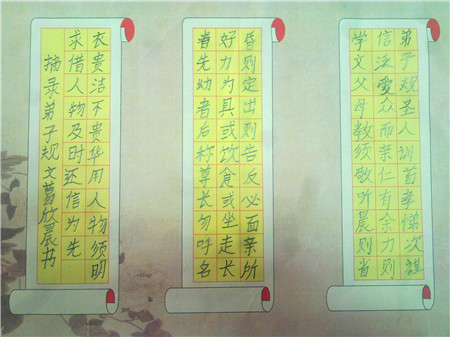 弟子规圣人训首孝悌次謹
信泛愛众而亲仁有余力则
学文父母教须敬听晨则省
昏则定出则告反必面亲所
好力为具或饮食或坐走长
者先幼者后称尊长勿呼名
衣贵洁不贵华用人物须明
求借人物及时还信为先
摘录弟子规文葛欣晨书